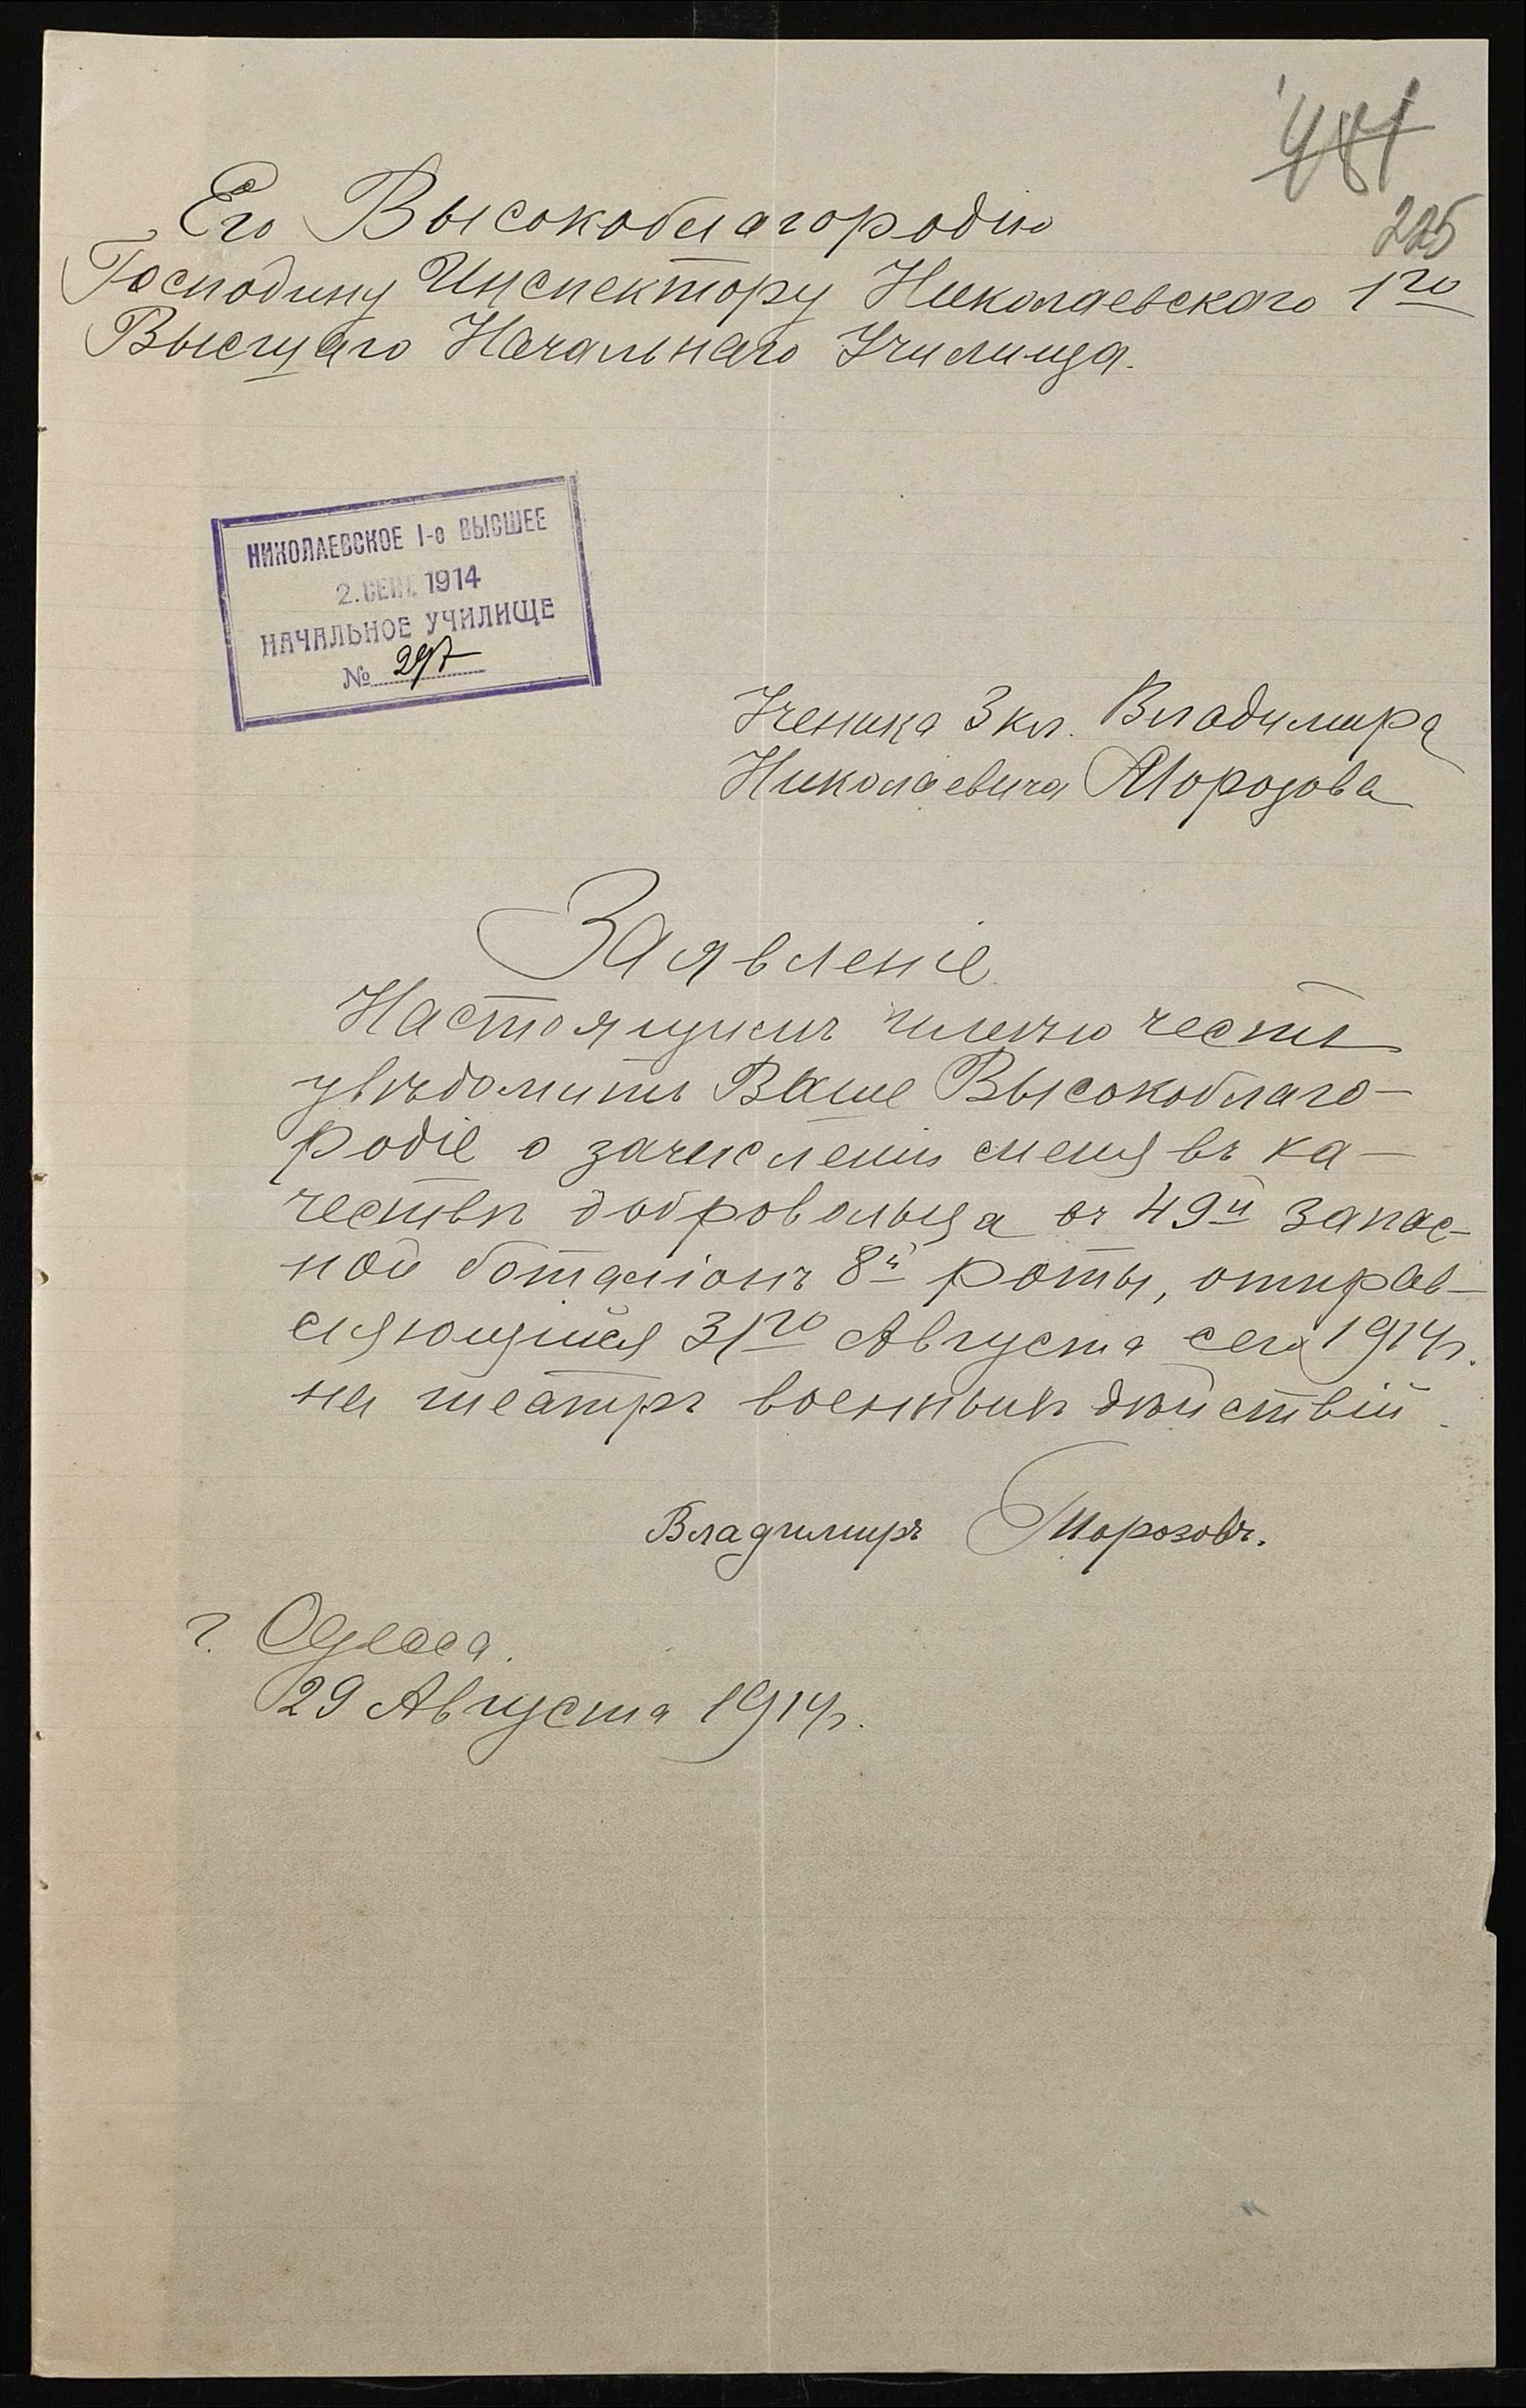 481
225
Его Высокоблагородію
Господину Инспектору Николаевскаго 1го
Высшаго Начальнаго Училища.
НИКОЛАЕВСКОЕ 1-о ВЫСШЕЕ
2. СЕН. 1914
НАЧАЛЬНОЕ УЧИЛИЩЕ
№ 297
Ученика 3 кл. Владимира
Николаевича Морозова
Заявленіе
Настоящимъ имѣю честь
увѣдомить Ваше Высокоблаго-
родіе о зачисленіи меня въ ка-
чествѣ добровольца въ 49й запас-
ной боталіонъ 8й роты, отправ-
ляющійся 31го Августа сего 1914г.
на театръ военныхъ дѣйствій.
Владимиръ Морозовъ.
г. Одесса.
29 Августа 1914г.